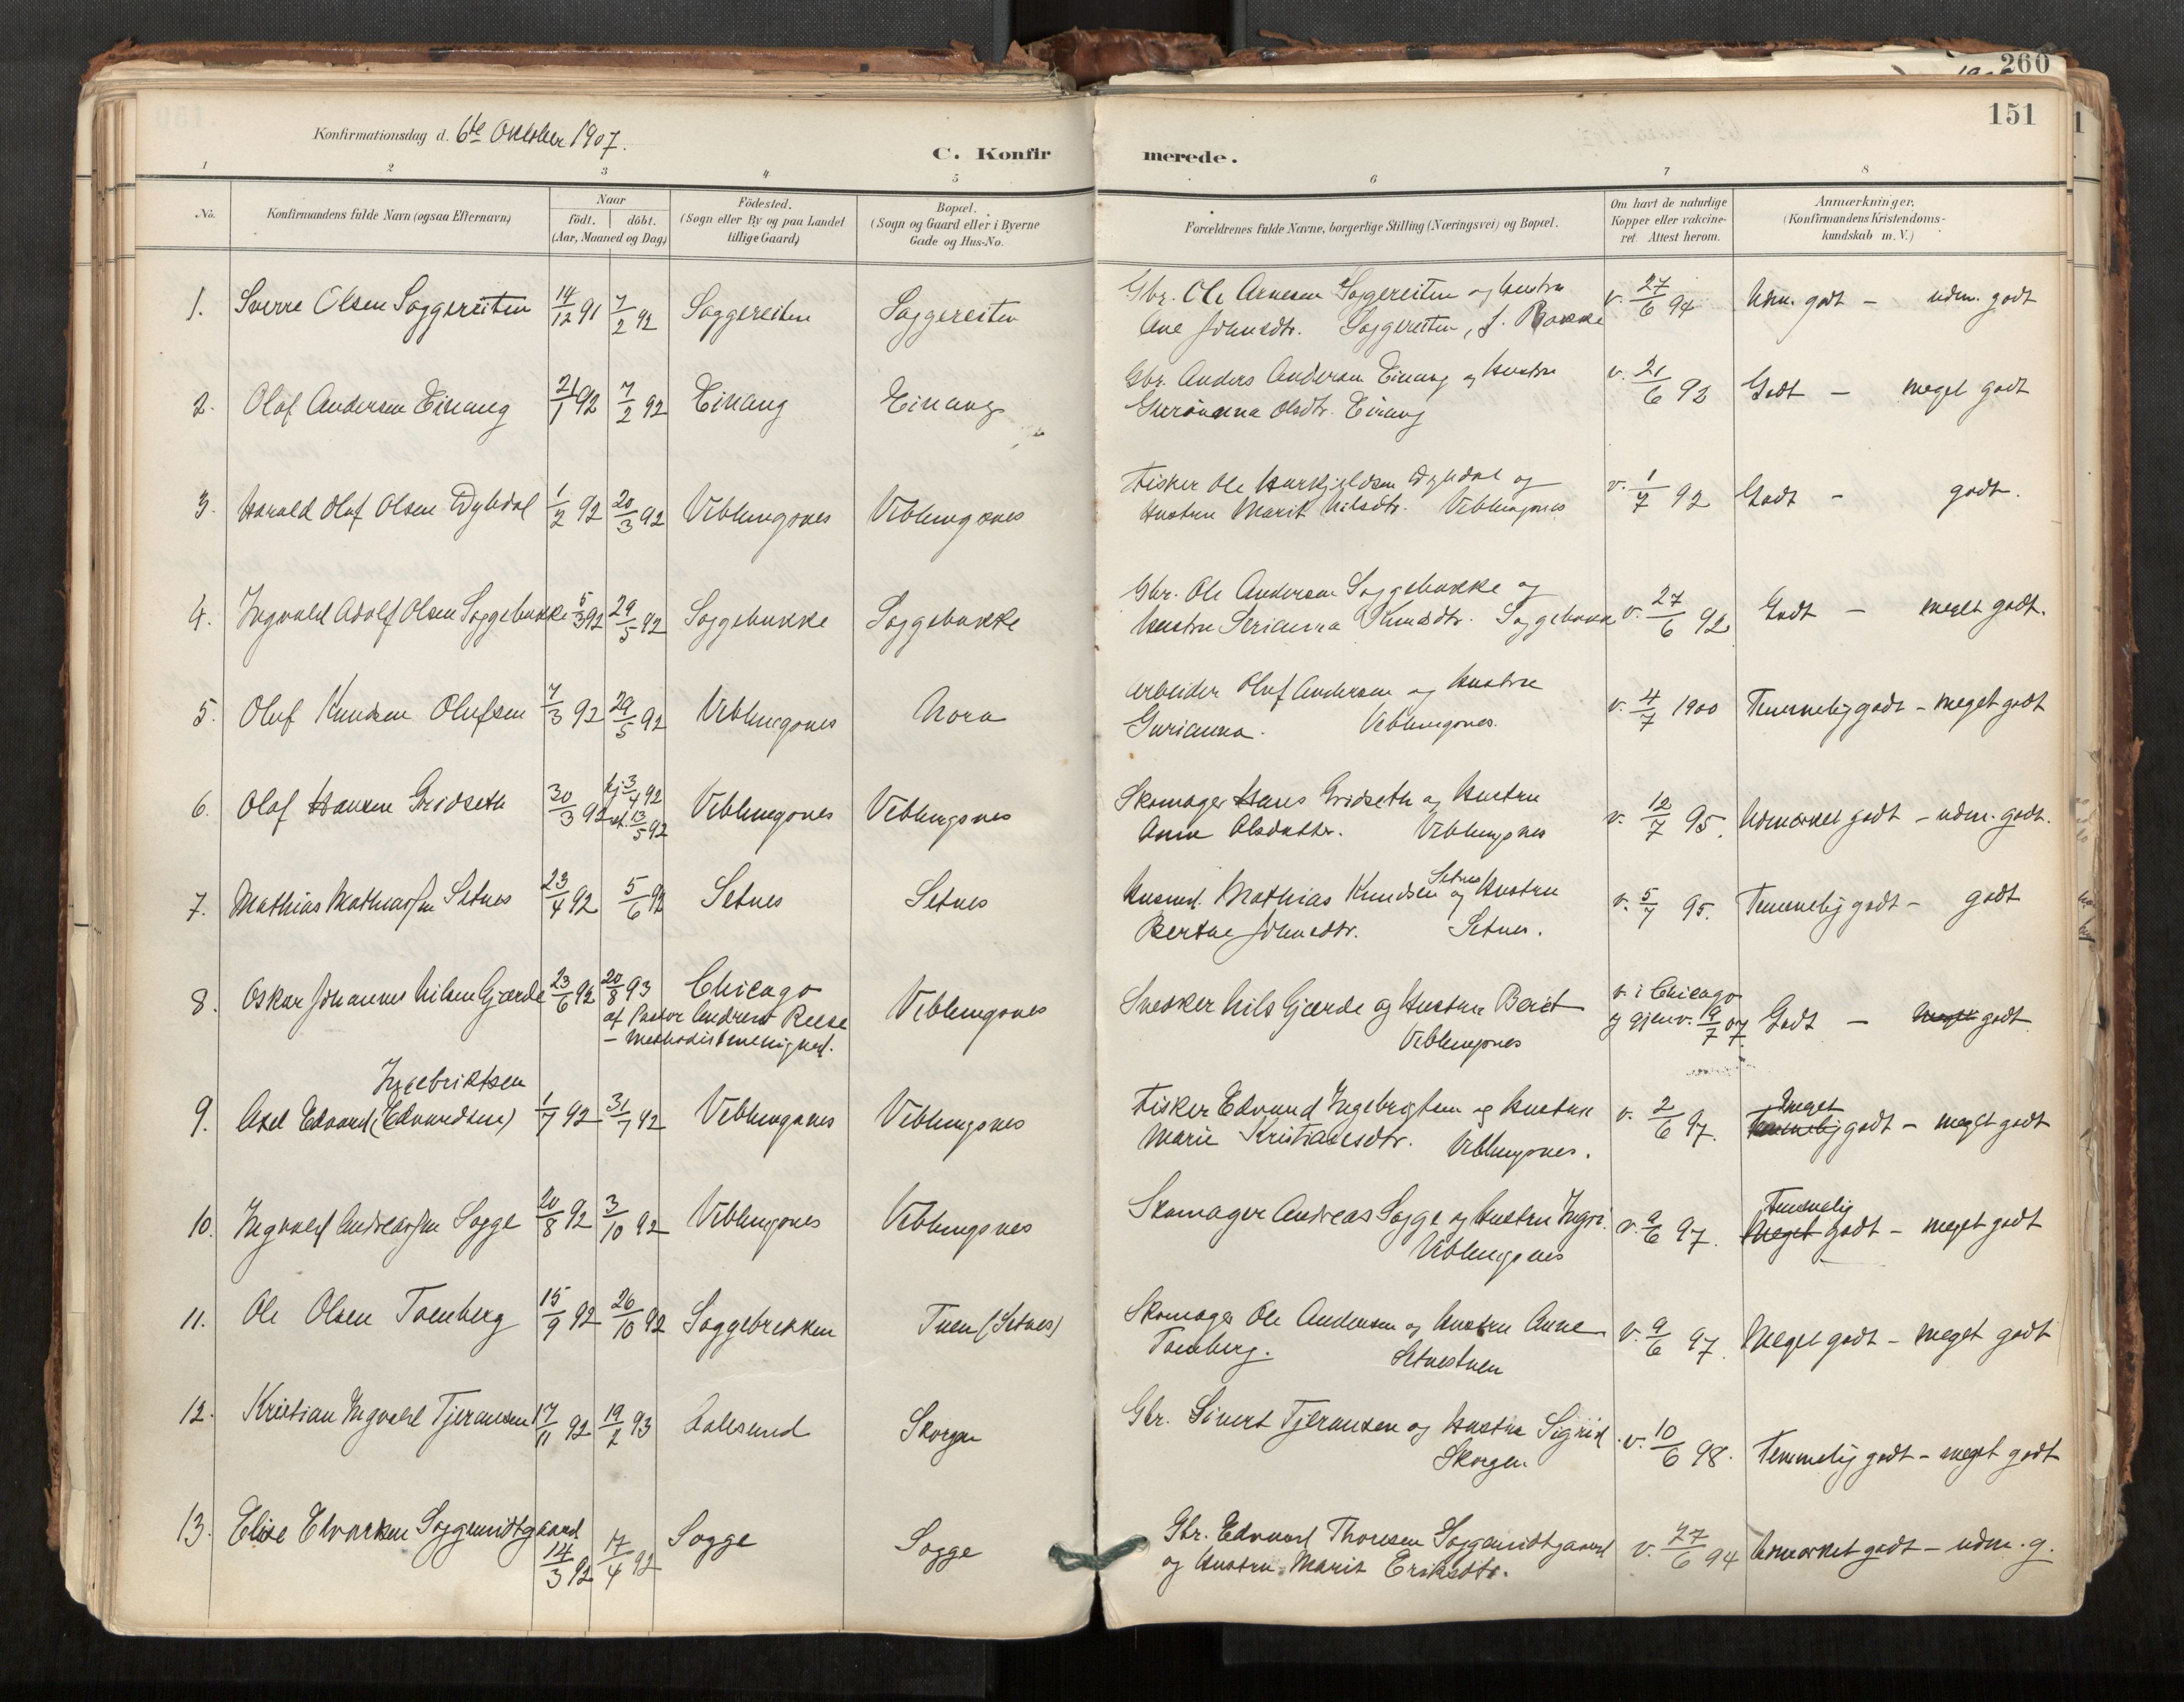 260
151
Konfirmationsdag d. 6te Oktober 1907.
C. Konfirmerede.
1 2 3 4 5 6 7 8
No.
Konfirmandens fulde Navn (ogsaa Efternavn)
Naar
født. døbt.
(Aar, Maaned og Dag)
Födested.
(Sogn eller By og paa Landet
tillige Gaard)
Bopæl.
(Sogn og Gaard eller i Byerne
Gade og Hus-No.
Forældrenes fulde Navne, borgerlige Stilling (Næringsvei) og Bopæl.
Om havt de naturlige
Kopper eller vakcine-
ret Attest herom.
Anmærkninger.
(Konfirmandens Kristendoms-
kundskab m. V.)
1. Sverre Olsen Soggereiten 14/12 91 7/2 92 Soggereiten Soggereiten Gbr. Ole Arnesen Soggereiten og hustru v. 27/6 94 Udm. godt – udm. godt
Ane Johnsdtr. Soggereiten, f. Bakke
2. Olaf Andersen Einang 21/1 92 7/2 92 Einang Einang Gbr. Anders Andersen Einang og hustru v. 21/6 92 Godt – meget godt
Gurianna Olsdtr. Einang
3. Harald Olaf Olsen Dybdal 1/2 92 20/3 92 Veblungsnes Veblungsnes Fisker Ole Hurkjeldsen Dybdal og v. 1/7 92 Godt – godt.
Hustru Marit Nilsdtr. Veblungsnes
4. Ingvald Adolf Olsen Soggebakke 5/3 92 29/5 92 Soggebakke Soggebakke Gbr. Ole Andersen Soggebakke og v. 27/6 92 Godt – meget godt.
hustru Serianna Knudsdtr. Soggebakke
5. Oluf Knudsen Olufsen 7/3 92 29/5 92 Veblungsnes Nora Arbeider Oluf Andersen og Hustru v. 4/7 1900 Temmelig godt – meget godt
Gurianna. Veblungsnes.
6. Olaf Hansen Gridseth 30/3 92 hj. 3/4 92 st. 13/5 92 Veblungsnes Veblungsnes Skomager Hans Gridseth og Hustru v. 12/7 95. Udmærket godt – udm. godt.
Anne Olsdatter. Veblungsnes
7. Mathias Mathiassen Setnes 23/4 92 5/6 92 Setnes Setnes Husmd. Mathias Knudsen Setnes og Hustru v. 5/7 95. Temmelig godt – godt
Berthe Johnsdtr. Setnes.
8. Oskar Johannes Nilsen Gjærde 23/6 92 20/8 93 Chicago Veblungsnes Snedker Nils Gjærde og Hustru Beret v. i Chicago Godt – meget godt
af Pastor Andrew Reese Veblungsnes og gjenv. 19/7 07
– Methodistmenighed.
9. Axel Edvard (Edvardsen) Ingebriktsen 1/7 92 31/7 92 Veblungsnes Veblungsnes Fisker Edvard Ingebrigtsen og Hustru v. 2/6 97. Temmelig Meget godt – meget godt
Marie Kristiansdtr. Veblungsnes.
10. Ingvald Andreassen Sogge 20/8 92 3/10 92 Veblungsnes Veblungsnes Skomager Andreas Sogge og Hustru Ingri. v. 9/6 97. Meget Temmelig godt – meget godt
Veblungsnes
11. Ole Olsen Tomberg 15/9 92 26/10 92 Soggebrekken Tuen (Setnes) Skomager Ole Andersen og Hustru Anne v. 9/6 97 Meget godt – meget godt
Tomberg. Setnestuen
12. Kristian Ingvald Tjeransen 17/11 92 19/2 93 Aalesund Skorgen Gbr. Sivert Tjeransen og Hustru Sigrid v. 10/6 98. Temmelig godt – meget godt
Skorgen
13. Elise Edvardsen Soggemidtgaard 14/3 92 17/4 92 Sogge Sogge Gbr. Edvard Thoresen Soggemidtgaard v. 27/6 94 Udmærket godt – udm. g.
og Hustru Marit Eriksdtr.